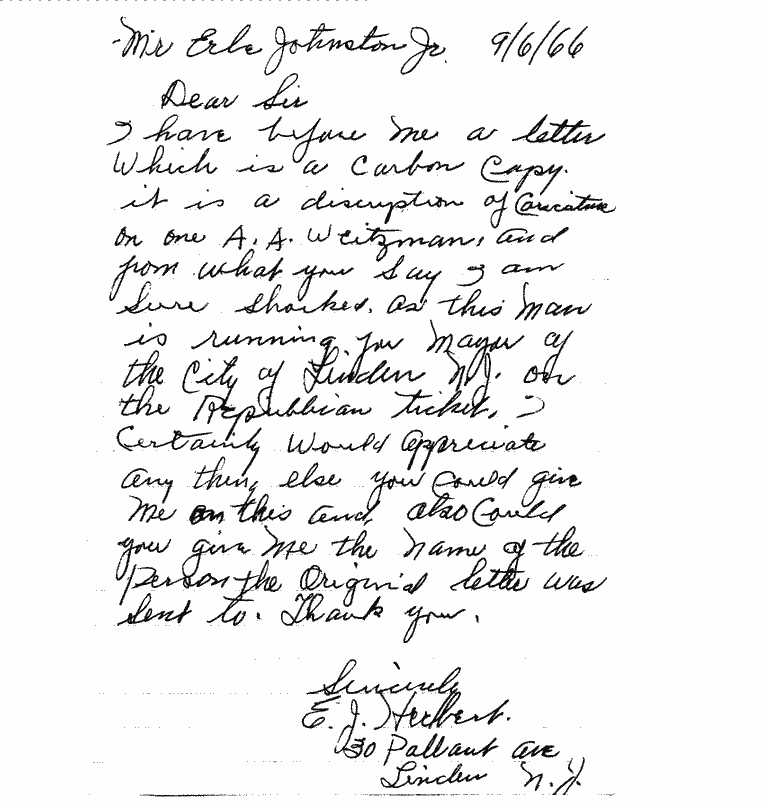 Mr Erle Johnston Jr. 9/6/66
Dear Sir
I have before me a letter
Which is a Carbon Copy.
it is a discription of Caricature
on one A. A. Weitzman, and
from what you say I am
Sure shocked. as this man
is running for Mayor of
the City of Linden N.J. on
the Republican ticket. I
Certainly Would appreciate
any thing else you could give
me on this and, also Could
you give me the name of the
Person the Original letter was
sent to. Thank you.
Sincerely
E. J. Herbert.
30 Pallant ave
Linden N.J.